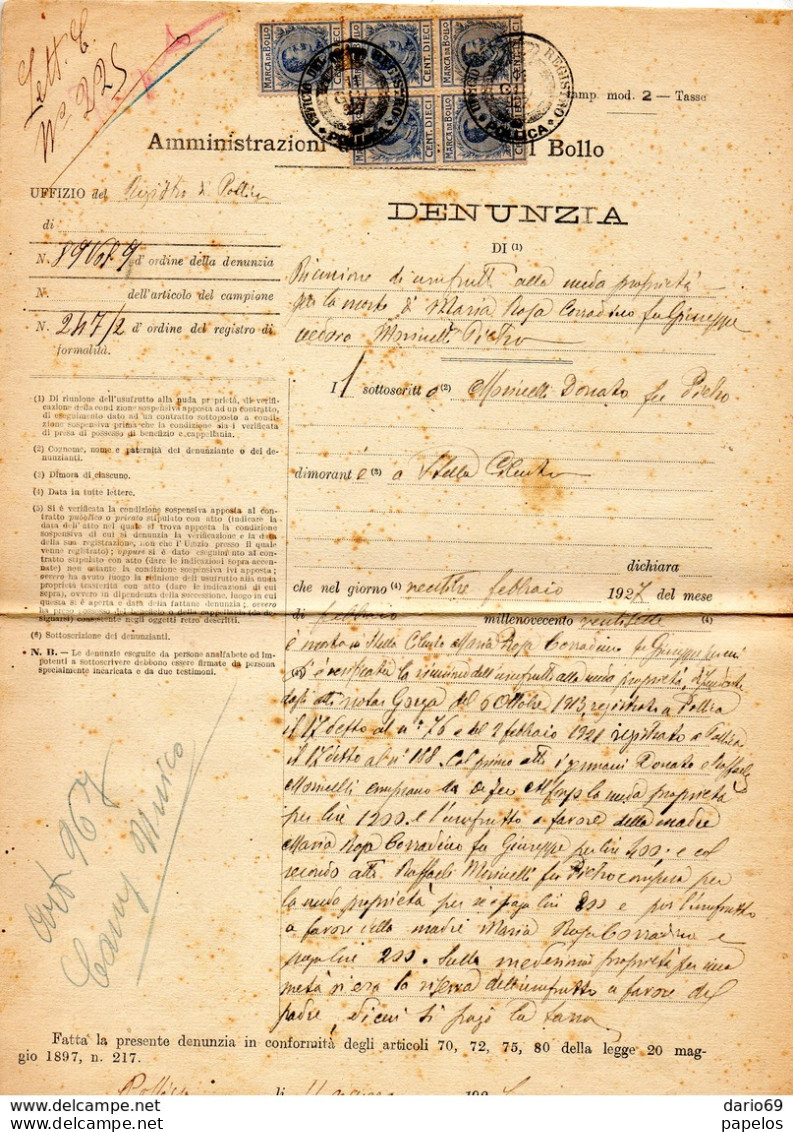 Sett. C.
N° 225
MARCA DA BOLLO CENT. DIECI
MARCA DA BOLLO CENT. DIECI
MARCA DA BOLLO CENT. DIECI
MARCA DA BOLLO CENT. DIECI
MARCA DA BOLLO CENT. DIECI
UFFICIO DEL REGISTRO POLLICA
UFFICIO DEL REGISTRO POLLICA
amp. mod. 2 - Tasse
Amministrazion l Bollo
UFFIZIO del Registro di Pollica
di
N. d'ordine della denunzia
N. dell'articolo del campione
N. 247/2 d'ordine del registro di
formalità.
(1) Di riunione dell'usufrutto alla nuda proprietà, di verifi-
cazione della condizione sospensiva apposta ad un contratto,
di eseguimento dato ad un contratto sottoposto a condizione
sospensiva prima che la condizione sia si verificata
di presa di possesso di benefizio e cappellania.
(2) Cognome, nome e paternità del denunziante o dei de-
nunzianti.
(3) Dimora di ciascuno.
(4) Data in tutte lettere.
(5) Si è verificata la condizione sospensiva apposta al con-
tratto pubblico o privato stipulato con atto (indicare la
data dell'atto nel quale si trova apposta la condizione
sospensiva di cui si denunzia la verificazione e la data
della sua registrazione, non che l'Uffizio presso il quale
venne registrato); oppure si è dato eseguimento al con-
tratto stipulato con atto (dare le indicazioni sopra accen-
nate) non ostante la condizione sospensiva ivi apposta;
ovvero ha avuto luogo la riunione dell'usufrutto alla nuda
proprietà trasferita con atto (dare le indicazioni di cui
sopra), ovvero in dipendenza della successione, luogo in cui
questa si è aperta e data della fattane denunzia; ovvero
ha preso possesso del benefizio o della cappellania (de-
signarsi) consistente negli oggetti retro descritti.
(6) Sottoscrizione dei denunzianti.
N. B. — Le denunzie eseguite da persone analfabete od im-
potenti a sottoscrivere debbono essere firmate da persona
specialmente incaricata e da due testimoni.
Art 967
DENUNZIA
DI (1)
Riunione di usufrutto alla nuda proprietà
per la morte di Maria Rosa Corradino fu Giuseppe
vedova Morinelli Pietro
I l sottoscritt o (2) Morinelli Donato fu Pietro
dimorant e (3) a Stella Cilento
dichiara
che nel giorno (4) ventitre febbraio 1927 del mese
di febbraio millenovecento ventisette (4)
è morta in Stella Cilento Maria Rosa Corradino fu Giuseppe
(5) s'è verificata la riunione dell'usufrutto alla nuda proprietà,
dagli atti notar Gorga del 6 Ottobre 1913, registrato a Pollica
il 17 detto al n° 76 e del 2 febbraio 1921 registrato a Pollica
il 17 detto al n° 188. Col primo atto i germani Donato e Raffaele
Morinelli comprano da la nuda proprietà
per lire 1200 e l'usufrutto a favore della madre
Maria Rosa Corradino fu Giuseppe per lire 400 e col
secondo atto Raffaele Morinelli fu Pietro compera per
la nuda proprietà per lire 800 e per l'usufrutto
a favore della madre Maria Rosa Corradino e
paga lire 200. Sulla medesima proprietà per una
metà vi era la riserva dell'usufrutto a favore del
padre, di cui si pagò la tassa
Fatta la presente denunzia in conformità degli articoli 70, 72, 75, 80 della legge 20 mag-
gio 1897, n. 217.
Pollica li 11 192
dario69
papelos